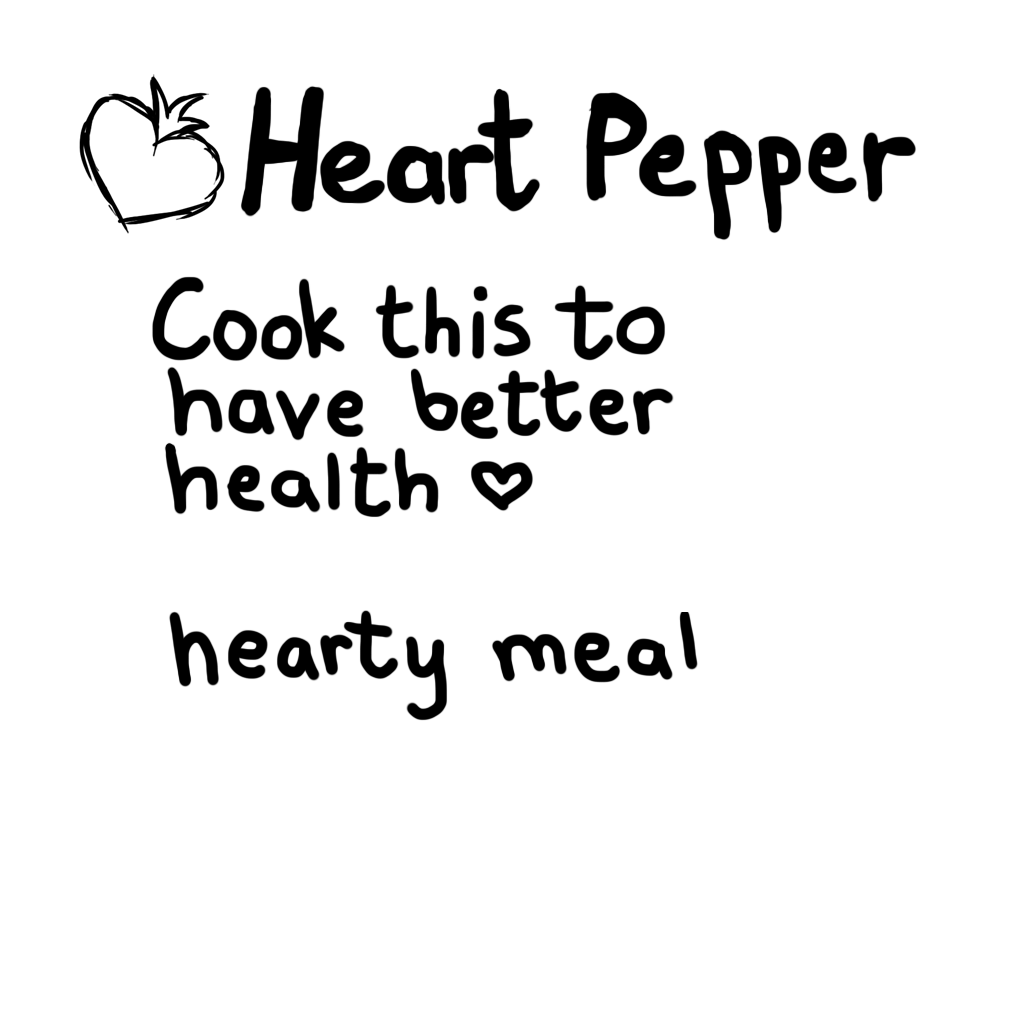 Heart Pepper
Cook this to
have better
health ♡
hearty meal